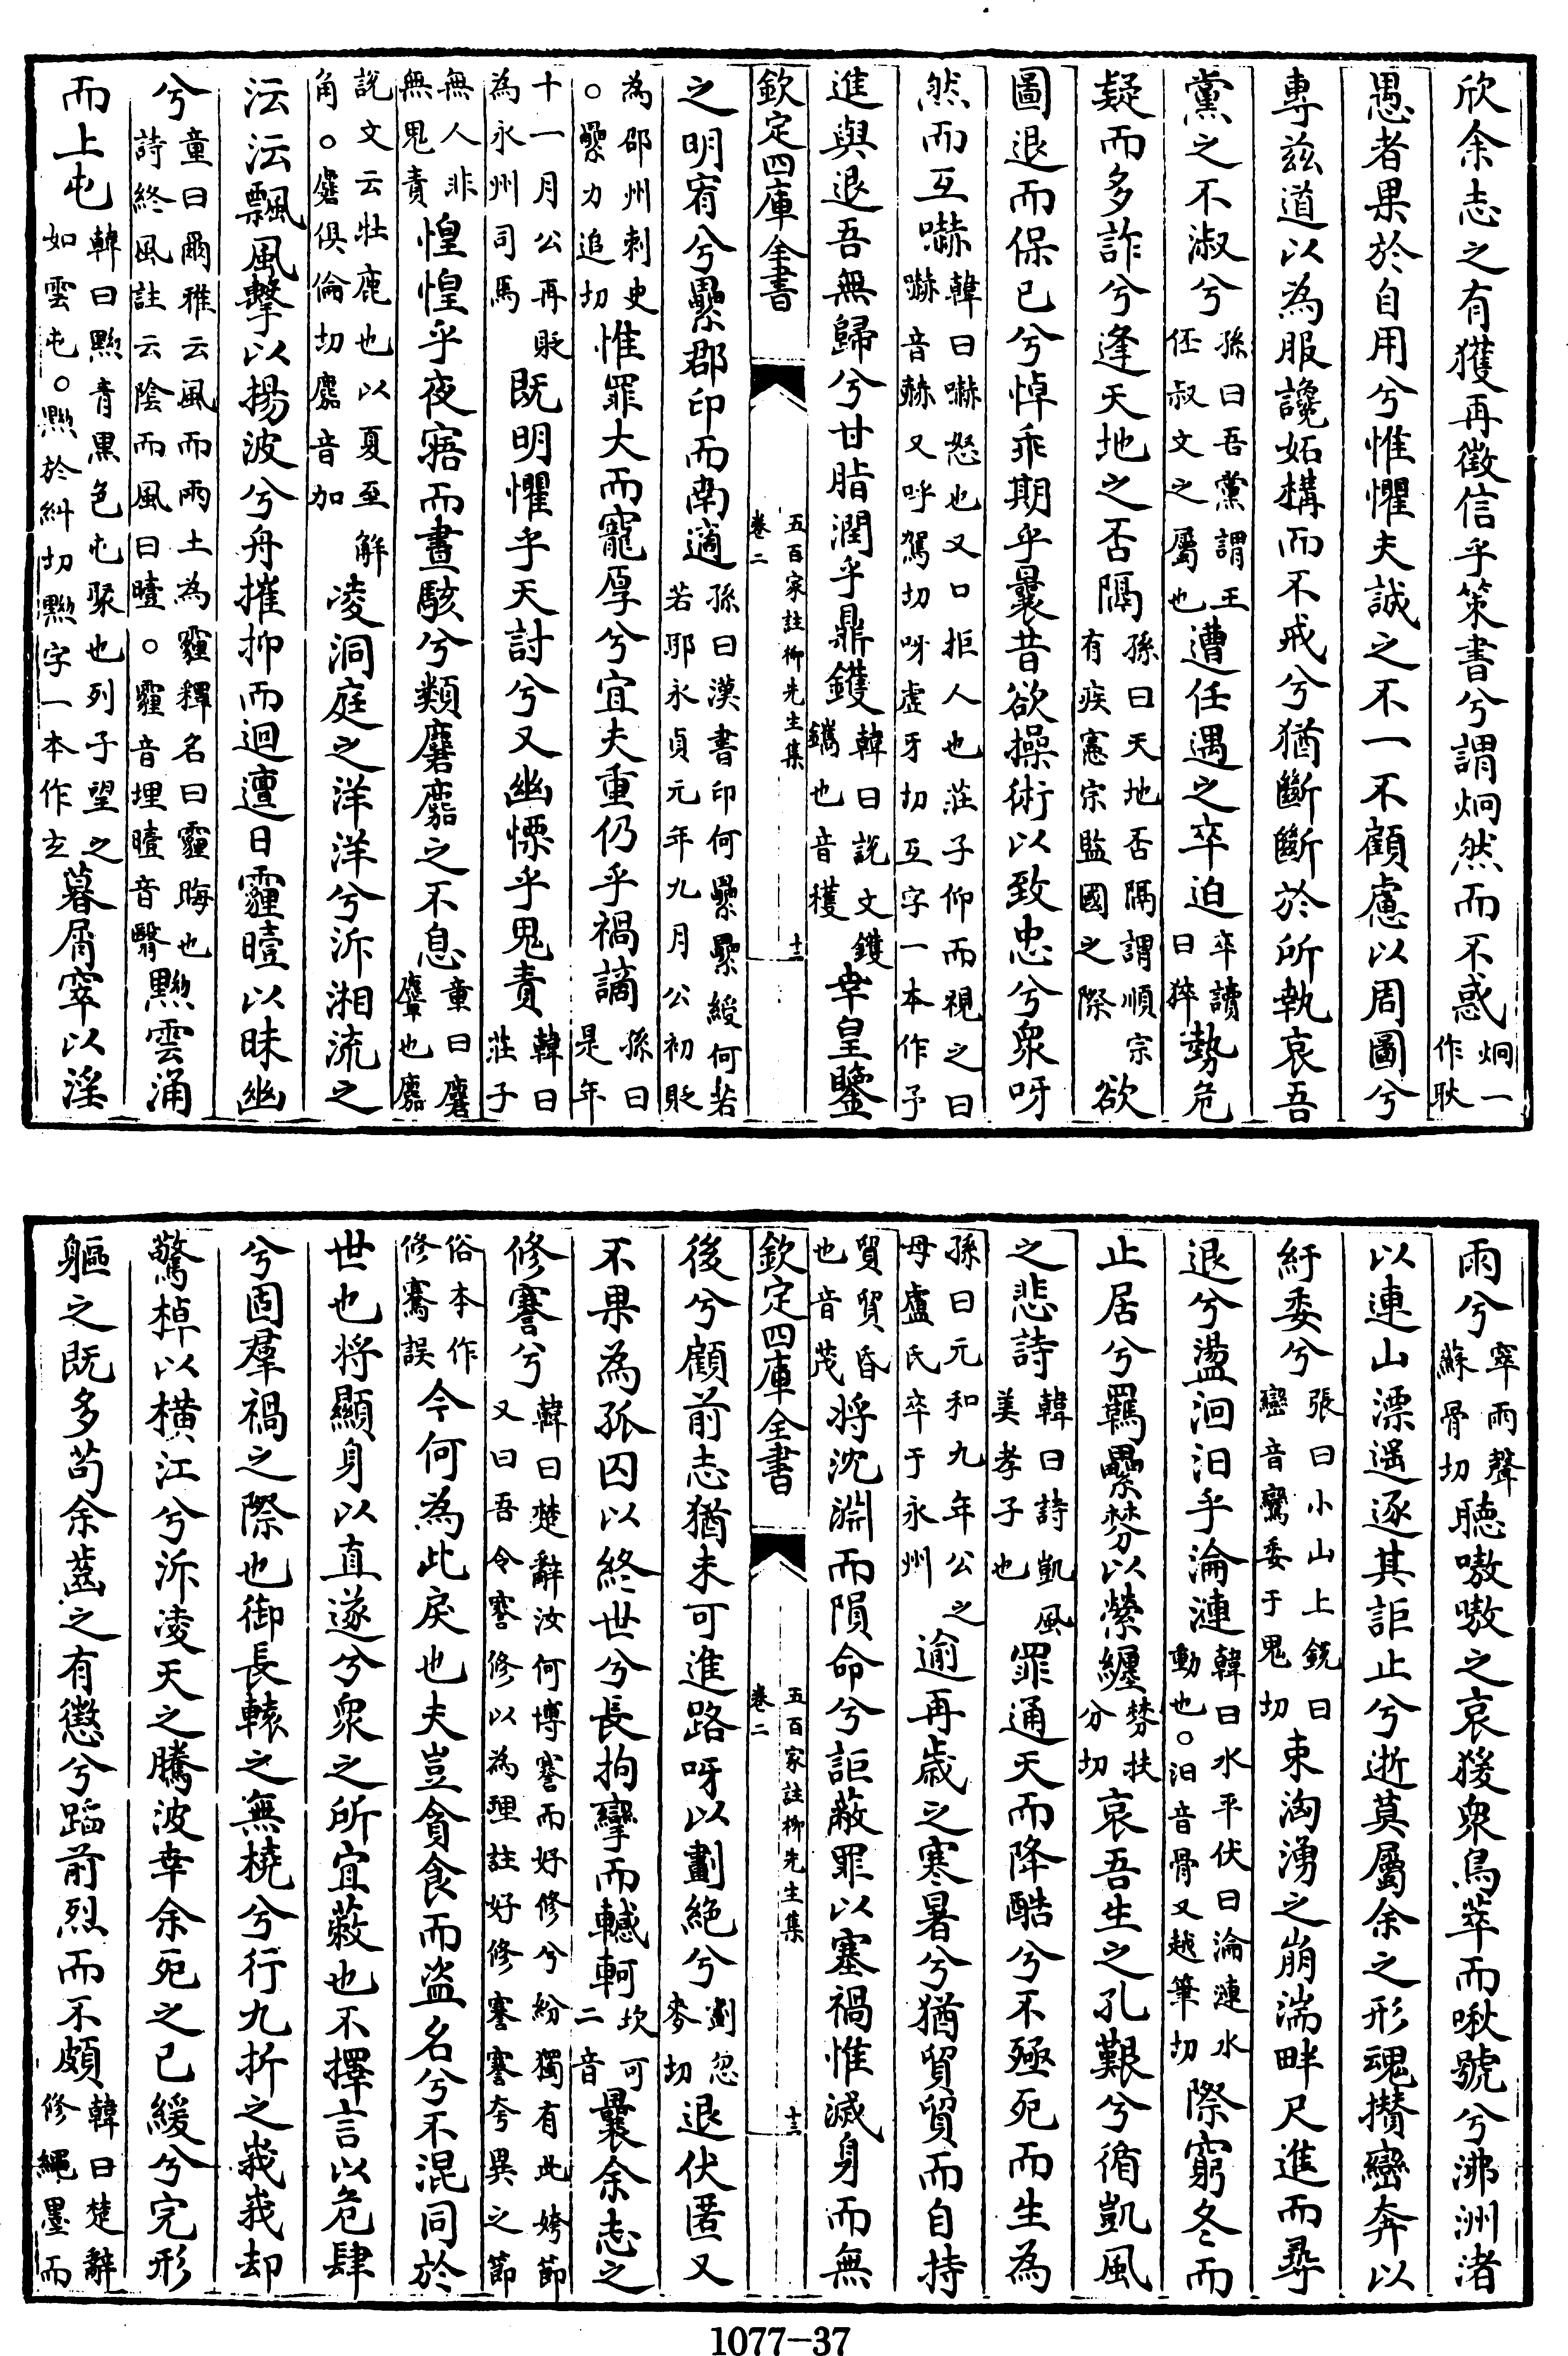 欣余志之有獲再徵信乎策書兮謂炯然而不惑炯一作耿
愚者果於自用兮惟懼夫誠之不一不顧慮以周圖兮
專兹道以為服讒妬構而不戒兮猶斷斷於所執哀吾
黨之不淑兮孫曰吾黨謂王伾叔文之屬也遭任遇之卒迫卒讀曰猝勢危
疑而多詐兮逢天地之否隔孫曰天地否隔謂順宗有疾憲宗監國之際欲
圖退而保已兮悼乖期乎曩昔欲操術以致忠兮衆呀
然而互嚇韓曰嚇怒也又口拒人也莊子仰而視之曰嚇音赫又呼駕切呀虛牙切互字一本作予
進與退吾無歸兮甘脂潤乎鼎鑊韓曰說文鑊鑴也音穫幸皇鑒
欽定四庫全書 卷二 五百家註柳先生集 十二
之明宥兮纍郡印而南適孫曰漢書印何纍纍綬何若若耶永貞元年九月公初貶
為邵州刺史○纍力追切惟罪大而寵厚兮宜夫重仍乎禍謫孫曰是年
十一月公再貶為永州司馬既明懼乎天討兮又幽慄乎鬼責韓曰莊子
無人非無鬼責惶惶乎夜寤而晝駭兮類麏麚之不息童曰麏麞也麚
說文云牡鹿也以夏至解角○麏俱倫切麚音加凌洞庭之洋洋兮泝湘流之
沄沄飄風擊以揚波兮舟摧抑而迴邅日霾曀以昧幽
兮童曰爾雅云風而雨土為霾釋名曰霾晦也詩終風註云陰而風曰曀○霾音埋曀音翳黝雲涌
而上屯韓曰黝青黑色屯聚也列子望之如雲屯○黝於糾切黝字一本作玄暮屑窣以淫
雨兮窣雨聲蘇骨切聽嗷嗷之哀猨衆鳥萃而啾號兮沸洲渚
以連山漂遥逐其詎止兮逝莫屬余之形魂攅巒奔以
紆委兮張曰小山上銳曰巒音鸞委于鬼切束洶湧之崩湍畔尺進而尋
退兮盪洄汩乎淪漣韓曰水平伏曰淪漣水動也○汩音骨又越筆切際窮冬而
止居兮羈纍棼以縈纏棼扶分切哀吾生之孔艱兮循凱風
之悲詩韓曰詩凱風美孝子也罪通天而降酷兮不殛死而生為
孫曰元和九年公之母盧氏卒于永州逾再歲之寒暑兮猶貿貿而自持
貿貿昏也音茂將沈淵而隕命兮詎蔽罪以塞禍惟滅身而無
欽定四庫全書 卷二 五百家註柳先生集 十三
後兮顧前志猶未可進路呀以劃絶兮劃忽麥切退伏匿又
不果為孤囚以終世兮長拘攣而轗軻坎可二音曩余志之
修謇兮韓曰楚辭汝何博謇而好修兮紛獨有此姱節又曰吾令謇修以為理註好修謇謇夸異之節
俗本作修騫誤今何為此戾也夫豈貪食而盗名兮不混同於
世也將顯身以直遂兮衆之所宜蔽也不擇言以危肆
兮固羣禍之際也御長轅之無橈兮行九折之峩峩却
驚棹以横江兮泝凌天之騰波幸余死之已緩兮完形
軀之既多苟余齒之有懲兮蹈前烈而不頗韓曰楚辭修繩墨而
1077-37